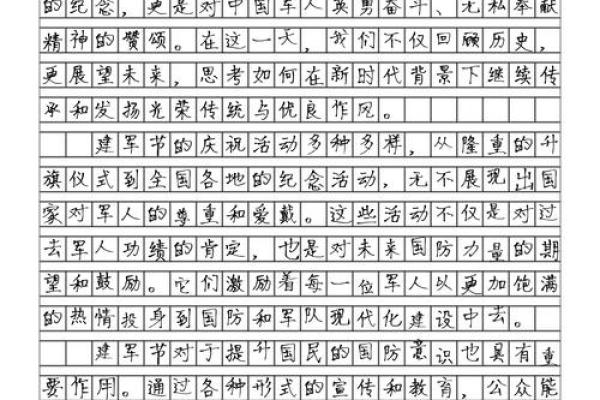 的纪念，更是对中国军人英勇奋斗、无私奉献
精神的赞颂。在这一天，我们不仅回顾历史，
更展望未来，思考如何在新时代背景下继续传
承和发扬光荣传统与优良作风。
建军节的庆祝活动多种多样，从隆重的升
旗仪式到全国各地的纪念活动，无不展现出国
家对军人的尊重和爱戴。这些活动不仅是对过
去军人功绩的肯定，也是对未来国防力量的期
望和鼓励。它们激励着每一位军人以更加饱满
的热情投身到国防和军队现代化建设中去。
建军节对于提升国民的国防意识也具有重
要作用。通过各种形式的宣传和教育，公众能